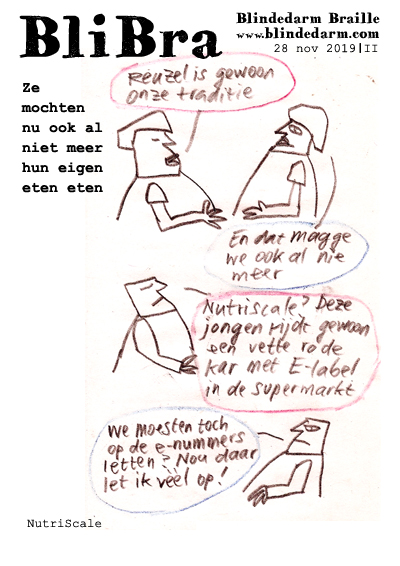 BliBra
Blindedarm Braille
www.blindedarm.com
28 nov 2019|II
Ze
mochten
nu ook al
niet meer
hun eigen
eten eten
Reuzel is gewoon
onze traditie
En dat magge
we ook al nie
meer
Nutriscale? Deze
jongen rijdt gewoon
een vette rode
kar met E-label
in de supermarkt
We moesten toch
op de e-nummers
letten? Nou daar
let ik véél op!
NutriScale